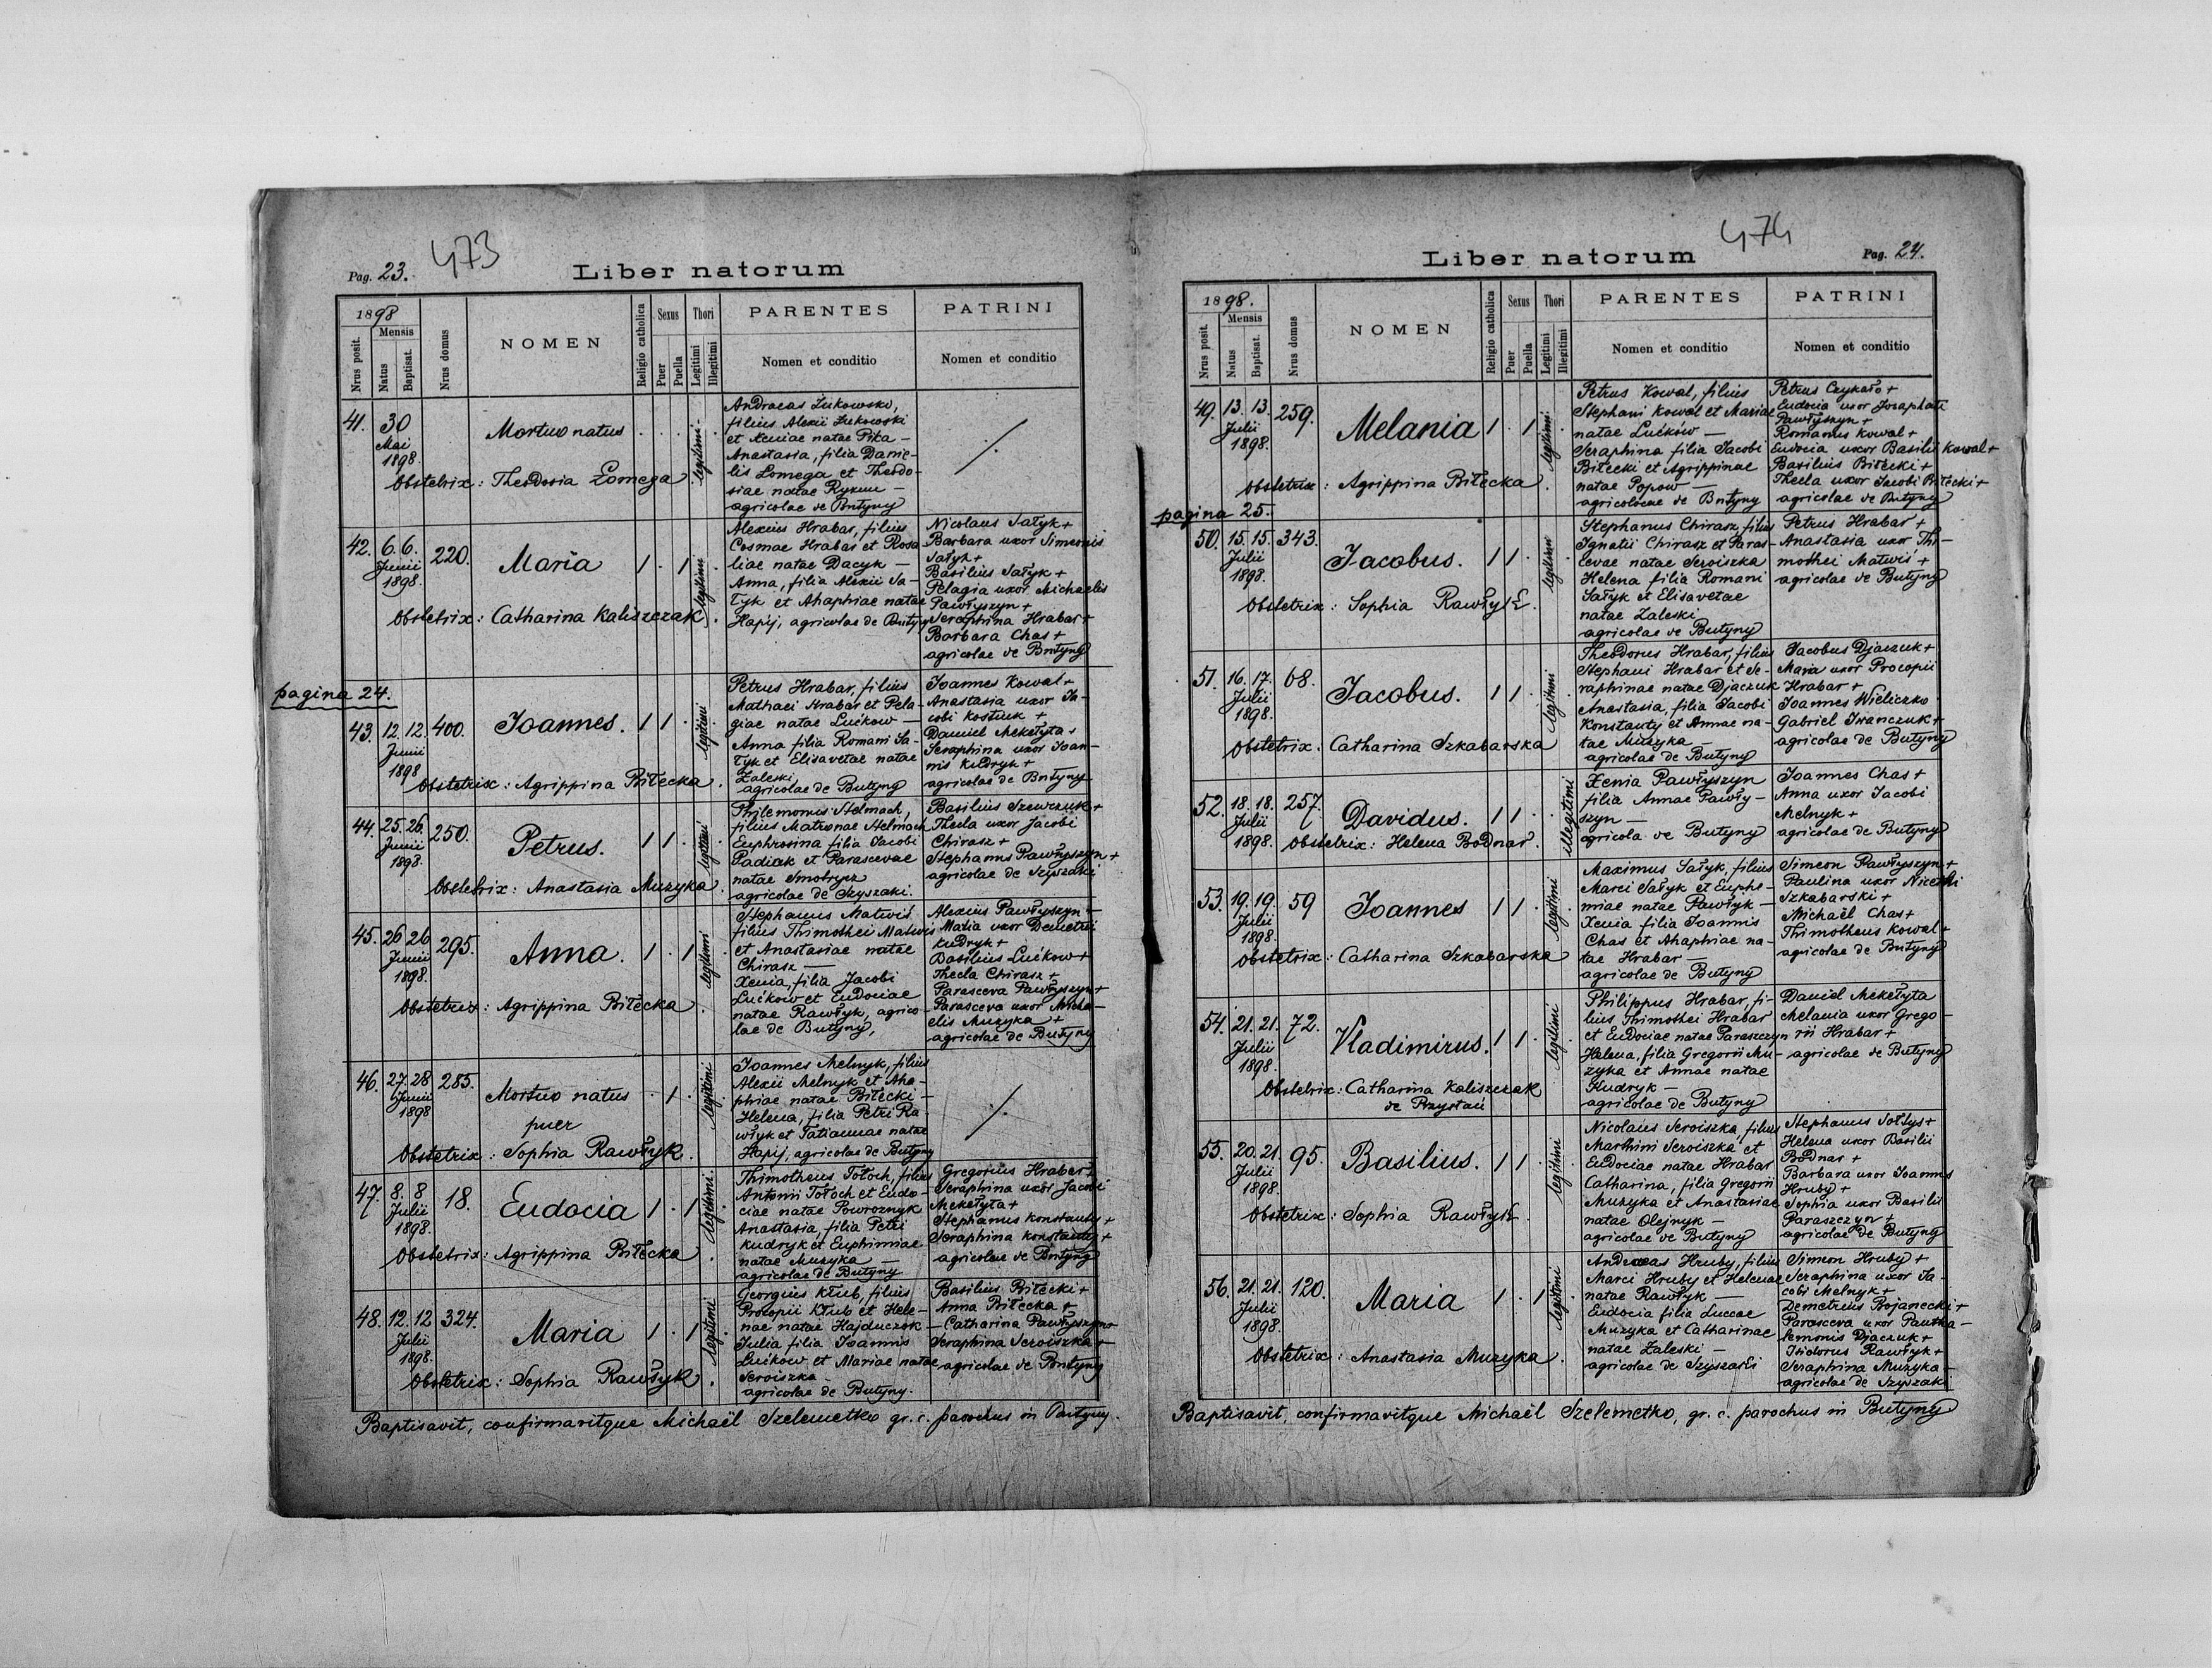 473
Pag. 23.
Liber natorum
1898
Mensis
Nrus posit.
Natus
Baptisat.
Nrus domus
NOMEN
Religio catholica
Sexus
Puer
Puella
Thori
Legitimi
Illegitimi
PARENTES
Nomen et conditio
PATRINI
Nomen et conditio
41. 30 Mai 1898.
Mortuo natus
legitimi
Obstetrix: Theodosia Łomega
Andreas Żukowski,
filius Alexii Żukowski
et Xeniae natae Pika —
Anastasia, filia Danie-
lis Łomega et Theodo-
siae natae
agricolae de Butyny
42. 6. 6. Junii 1898. 220.
Maria 1 . 1
legitimi
Obstetrix: Catharina Kaliszczak
Alexius Hrabar, filius
Cosmae Hrabar et Rosa-
liae natae Dacyk —
Anna, filia Alexii Sa-
łyk et Ahaphiae natae
Hapij, agricolae de Butyny
Nicolaus Sałyk +
Barbara uxor Simeonis
Sałyk +
Basilius Sałyk +
Pelagia uxor Michaelis
Pawłyszyn +
Seraphina Hrabar +
Barbara Chas +
agricolae de Butyny
pagina 24.
43. 12. 12. Junii 1898 400.
Joannes. 1 1
legitimi
Obstetrix: Agrippina Biłecka
Petrus Hrabar, filius
Mathaei Hrabar et Pela-
giae natae Lućkow —
Anna filia Romani Sa-
łyk et Elisavetae natae
Zaleski,
agricolae de Butyny
Joannes Kowal +
Anastasia uxor Ja-
cobi Kostiuk +
Daniel Mekełyta +
Seraphina uxor Joan-
nis Kudryk +
agricolae de Butyny
44. 25. 26. Junii 1898. 250.
Petrus. 1 1
legitimi
Obstetrix: Anastasia Muzyka
Philemonus Stelmach,
filius Matronae Stelmach
Euphrosina filia Jacobi
Padiak et Parascevae
natae Smotrycz
agricolae de Szyszaki.
Basilius Szewczuk +
Thecla uxor Jacobi
Chirasz +
Stephanus Pawłyszyn +
agricolae de Szyszaki
45. 26 26 Junii 1898. 295.
Anna. 1 . 1
legitimi
Obstetrix: Agrippina Biłecka
Stephanus Matwiś
filius Thimothei Matwiś
et Anastasiae natae
Chirasz —
Xenia, filia Jacobi
Lućkow et Eudociae
natae Rawłyk, agrico-
lae de Butyny,
Alexius Pawłyszyn +
Maria uxor Demetrii
Kudryk +
Basilius Lućkow +
Thecla Chirasz +
Parasceva Pawłyszyn +
Parasceva uxor Micha-
elis Muzyka +
agricolae de Butyny
46. 27. 28 Junii 1898 285.
Mortuo natus . 1 .
puer
legitimi
Obstetrix: Sophia Rawłyk.
Joannes Melnyk, filius
Alexii Melnyk et Aha-
phiae natae Biłecki —
Helena, filia Petri Ra-
włyk et Tatiannae natae
Hapij, agricolae de Butyny
47. 8. 8 Julii 1898. 18.
Eudocia 1 . 1
legitimi
Obstetrix: Agrippina Biłecka
Thimotheus Tołoch, filius
Antonii Tołoch et Eudo-
ciae natae Powroznyk
Anastasia, filia Petri
Kudryk et Euphimiae
natae Muzyka —
agricolae de Butyny
Gregorius Hrabar +
Seraphina uxor Jacobi
Mekełyta +
Stephanus Konstanty +
Seraphina Konstanty +
agricolae de Butyny
48. 12. 12 Julii 1898. 324.
Maria 1 . 1
legitimi
Obstetrix: Sophia Rawłyk.
Georgius Kłub, filius
Procopii Kłub et Hele-
nae natae Hajduczok —
Julia filia Joannis
Lućkow et Mariae natae
Seroiszka —
agricolae de Butyny.
Basilius Biłecki +
Anna Biłecka +
Catharina Pawłyszyn +
Seraphina Seroiszka +
agricolae de Butyny
Baptisavit, confirmavitque Michaël Szelemetko gr. c. parochus in Butyny.
474
Liber natorum
Pag. 24.
1898.
Mensis
Nrus posit.
Natus
Baptisat.
Nrus domus
NOMEN
Religio catholica
Sexus
Puer
Puella
Thori
Legitimi
Illegitimi
PARENTES
Nomen et conditio
PATRINI
Nomen et conditio
49. 13. 13. Julii 1898. 259.
Melania 1 . 1
legitimi
Obstetrix: Agrippina Biłecka
Petrus Kowal, filius
Stephani Kowal et Mariae
natae Lućków —
Seraphina filia Jacobi
Biłecki et Agrippinae
natae Popow —
agricolae de Butyny
Petrus Czykało +
Eudocia uxor Josaphati
Pawłyszyn +
Romanus Kowal +
Eudocia uxor Basilii Kowal +
Basilius Biłecki +
Thecla uxor Jacobi Biłecki +
agricolae de Butyny
pagina 25.
50. 15. 15. Julii 1898. 343.
Jacobus. 1 1
legitimi
Obstetrix: Sophia Rawłyk.
Stephanus Chirasz, filius
Ignatii Chirasz et Paras-
cevae natae Seroiszka
Helena filia Romani
Sałyk et Elisavetae
natae Zaleski
agricolae de Butyny
Petrus Hrabar +
Anastasia uxor Thi-
mothei Matwiś +
agricolae de Butyny
51. 16. 17. Julii 1898. 68.
Jacobus. 1 1
legitimi
Obstetrix: Catharina Szkabarska
Theodorus Hrabar, filius
Stephani Hrabar et Se-
raphinae natae Djaczuk
Anastasia, filia Jacobi
Konstanty et Annae na-
tae Muzyka —
agricolae de Butyny
Jacobus Djaczuk +
Maria uxor Procopii
Hrabar +
Joannes Wieliczko
Gabriel Iwanczuk +
agricolae de Butyny
52. 18. 18. Julii 1898. 257.
Davidus. 1 1
illegitimi
Obstetrix: Helena Bodnar.
Xenia Pawłyszyn
filia Annae Pawły-
szyn —
agricola de Butyny
Joannes Chas +
Anna uxor Jacobi
Melnyk +
agricolae de Butyny
53. 19. 19. Julii 1898. 59
Joannes 1 1
legitimi
Obstetrix: Catharina Szkabarska
Maximus Sałyk, filius
Marci Sałyk et Euphi-
miae natae Pawłyk —
Xenia filia Joannis
Chas et Ahaphiae na-
tae Hrabar —
agricolae de Butyny
Simeon Pawłyszyn +
Paulina uxor
Szkabarski +
Michaël Chas +
Thimotheus Kowal +
agricolae de Butyny
54. 21. 21. Julii 1898. 72.
Vladimirus. 1 1
legitimi
Obstetrix: Catharina Kaliszczak
de Przystań
Philippus Hrabar, fi-
lius Thimothei Hrabar
et Eudociae natae Paraszczyn
Helena, filia Gregorii Mu-
zyka et Annae natae
Kudryk —
agricolae de Butyny
Daniel Mekełyta
Melania uxor Grego-
rii Hrabar +
agricolae de Butyny
55. 20. 21. Julii 1898. 95.
Basilius. 1 1
legitimi
Obstetrix: Sophia Rawłyk
Nicolaus Seroiszka, filius
Marthini Seroiszka et
Eudociae natae Hrabar
Catharina, filia Gregorii
Muzyka et Anastasiae
natae Olejnyk —
agricolae de Butyny
Stephanus Sołtys +
Helena uxor Basilii
Bodnar +
Barbara uxor Joannis
Hruby +
Sophia uxor Basilii
Paraszczyn +
agricolae de Butyny
56. 21. 21. Julii 1898. 120.
Maria 1 . 1
legitimi
Obstetrix: Anastasia Muzyka
Andreas Hruby, filius
Marci Hruby et Helenae
natae Rawłyk —
Eudocia filia Luccae
Muzyka et Catharinae
natae Zaleski —
agricolae de Szyszaki
Simon Hruby +
Seraphina uxor Ja-
cobi Melnyk +
Demetrius Bojanecki +
Parasceva uxor Panta-
lemonis Djaczuk +
Isidorus Rawłyk +
Seraphina Muzyka —
agricolae de Szyszaki
Baptisavit, confirmavitque Michaël Szelemetko, gr. c. parochus in Butyny